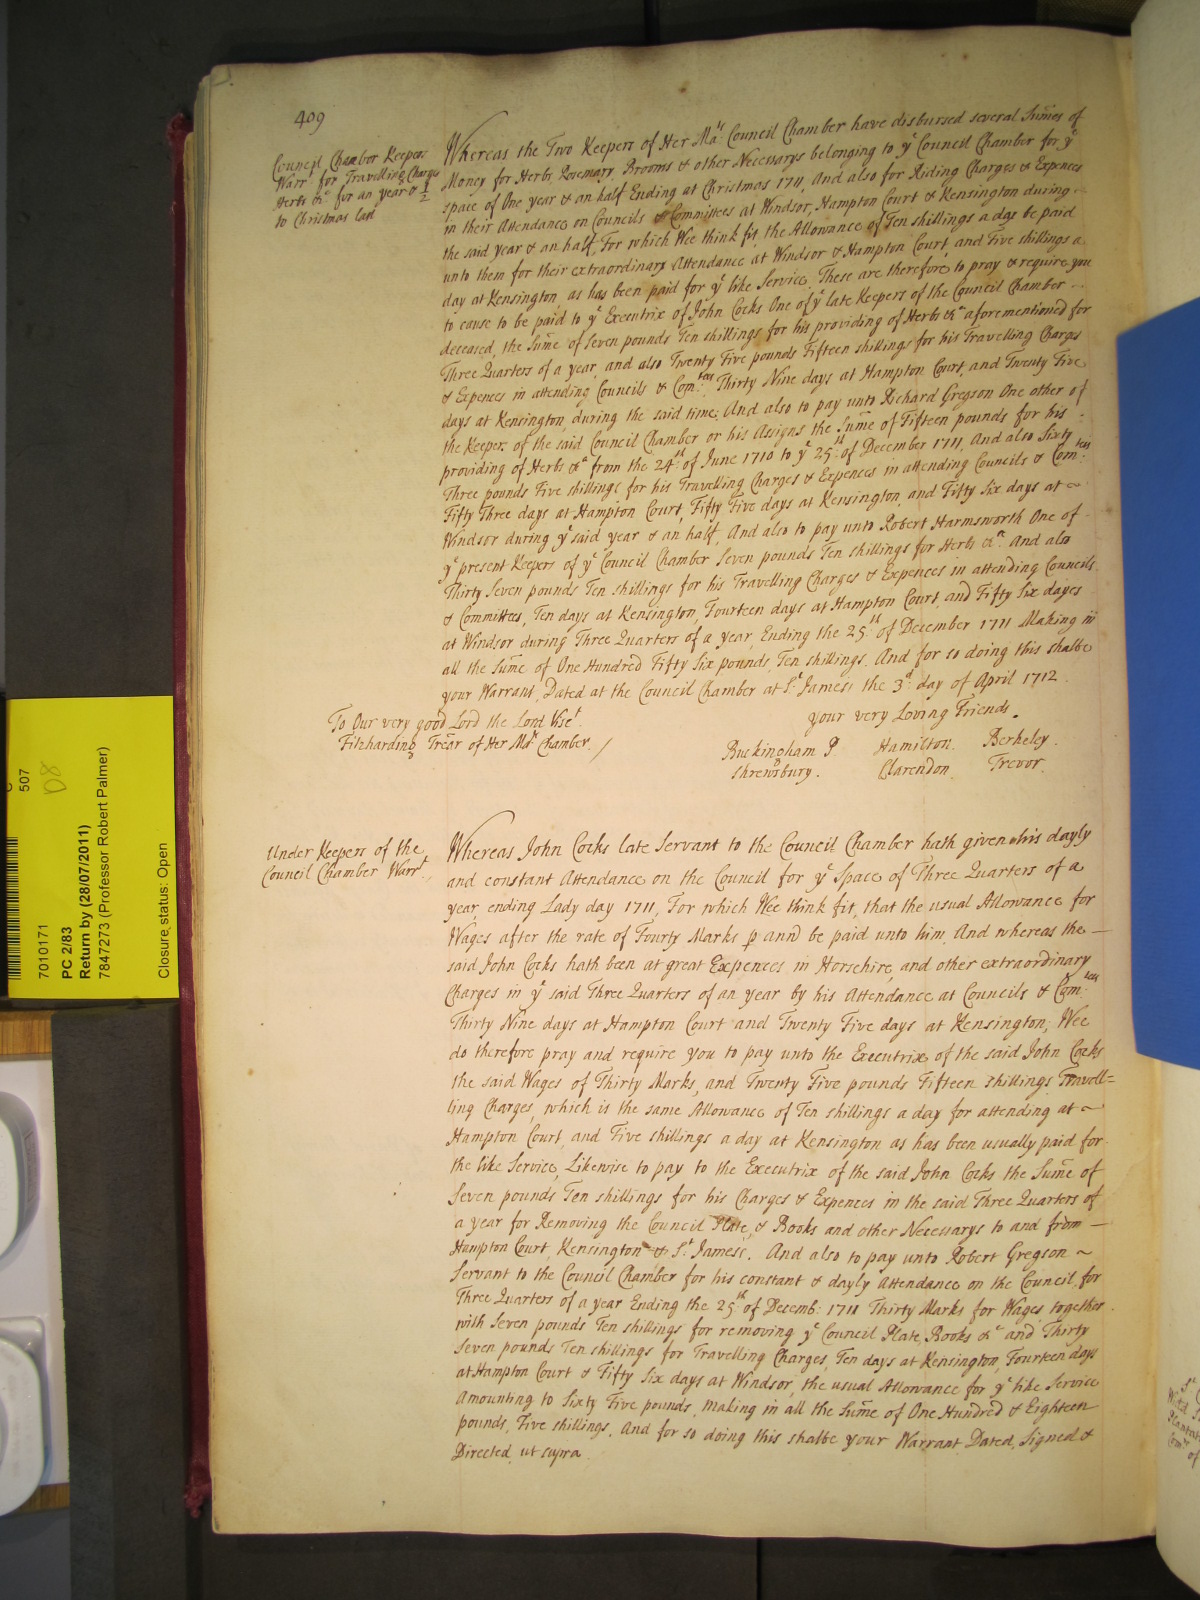 409
Council Chambr Keepers
Warrt for Travelling Charges
Herbs &c. for an year & ½
to Christmas last
Whereas the Two Keepers of Her Mats Council Chamber have disbursed several Sumes of
Money for Herbs, Rosemary, Brooms & other Necessarys belonging to ye Council Chamber for ye
space of One year & an half Ending at Christmas 1711, And also for Riding Charges & Expences
in their Attendance on Councils & Committees at Windsor, Hampton Court & Kensington during
the said year & an half, For which Wee think fit the Allowance of Ten shillings a day be paid
unto them for their extraordinary Attendance at Windsor & Hampton Court, and Five shillings a
day at Kensington, as has been paid for ye like Service, These are therefore to pray & require you
to cause to be paid to ye Executrix of John Cocks One of ye late Keepers of the Council Chamber
deceased, the Sume of Seven pounds Ten shillings for his providing of Herbs &c aforementioned for
Three Quarters of a year, and also Twenty Five pounds Fifteen shillings for his Travelling Charges
& Expences in attending Councils & Com:tees Thirty Nine days at Hampton Court, and Twenty Five
days at Kensington, during the said time; And also to pay unto Richard Gregson One other of
the Keepers of the said Council Chamber or his Assigns the Sume of Fifteen pounds for his
providing of Herbs &c from the 24th of June 1710 to ye 25th of December 1711, And also Sixty
Three pounds Five shillings for his Travelling Charges & Expences in attending Councils & Com:tees
Fifty Three days at Hampton Court, Fifty Five days at Kensington, and Fifty Six days at ~
Windsor during ye said year & an half, And also to pay unto Robert Harmsworth One of
ye present Keepers of ye Council Chamber Seven pounds Ten shillings for Herbs &c. And also
Thirty Seven pounds Ten shillings for his Travelling Charges & Expences in attending Councils
& Committees, Ten days at Kensington, Fourteen days at Hampton Court, and Fifty Six dayes
at Windsor during Three Quarters of a year, Ending the 25th of December 1711 Making in
all the Sume of One Hundred Fifty Six pounds, Ten shillings. And for so doing this shalbe
your Warrant, Dated at the Council Chamber at St. James's the 3d. day of April 1712.
To Our very good Lord the Lord Visct.
Fitzharding Trear of Her Mats Chamber. /
your very Loving Friends.
Buckingham P Hamilton. Berkeley.
Shrewsbury. Clarendon Trevor.
Under Keepers of the
Council Chamber Warrt.
Whereas John Cocks late Servant to the Council Chamber hath given his dayly
and constant Attendance on the Council for ye Space of Three Quarters of a
year, ending Lady day 1711, For which Wee think fit, that the usual Allowance for
Wages after the rate of Fourty Marks p ann be paid unto him, And whereas the —
said John Cocks hath been at great Expences in Horsehire, and other extraordinary
Charges in ye said Three Quarters of an year by his Attendance at Councils & Com:tees
Thirty Nine days at Hampton Court and Twenty Five days at Kensington; Wee
do therefore pray and require you to pay unto the Executrix of the said John Cocks
the said Wages of Thirty Marks, and Twenty Five pounds Fifteen shillings Travell=
ling Charges, which is the same Allowance of Ten shillings a day for attending at ~
Hampton Court, and Five shillings a day at Kensington as has been usually paid for
the like Service, Likewise to pay to the Executrix of the said John Cocks the Sume of
Seven pounds Ten shillings for his Charges & Expences in the said Three Quarters of
a year for Removing the Council Plate, & Books and other Necessarys to and from —
Hampton Court, Kensington & St. James's. And also to pay unto Robert Gregson ~
Servant to the Council Chamber for his constant & dayly Attendance on the Council, for
Three Quarters of a year Ending the 25th of Decemb: 1711 Thirty Marks for Wages, together
with Seven pounds Ten shillings for removing ye Council Plate, Books &c and Thirty
Seven pounds Ten shillings for Travelling Charges, Ten days at Kensington, Fourteen days
at Hampton Court & Fifty Six days at Windsor, the usual Allowance for ye like Service
Amounting to Sixty Five pounds, making in all the Sume of One Hundred & Eighteen
pounds, Five shillings, And for so doing this shalbe your Warrant Dated, Signed &
Directed, ut supra.
507
D8
7010171
PC 2/83
Return by (28/07/2011)
7847273 (Professor Robert Palmer)
Closure status: Open